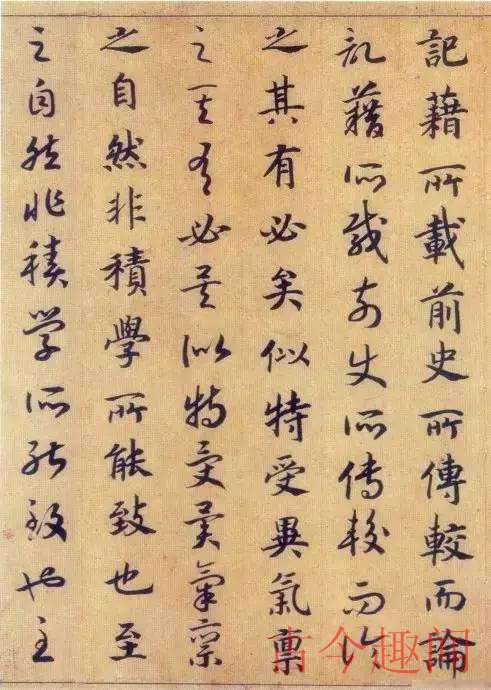 記藉所載前史所傳較而論
記藉所載前史所傳較而論
之其有必矣似特受異氣稟
之其有必矣似特受異氣稟
之自然非積學所能致也至
之自然非積學所能致也至
古今趣闻